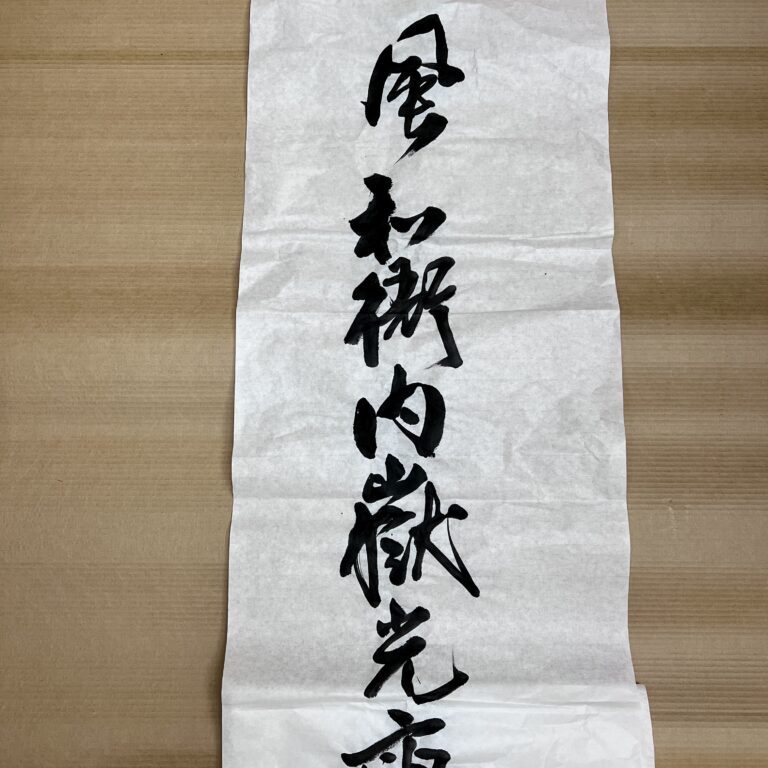 風和衙内嶽光